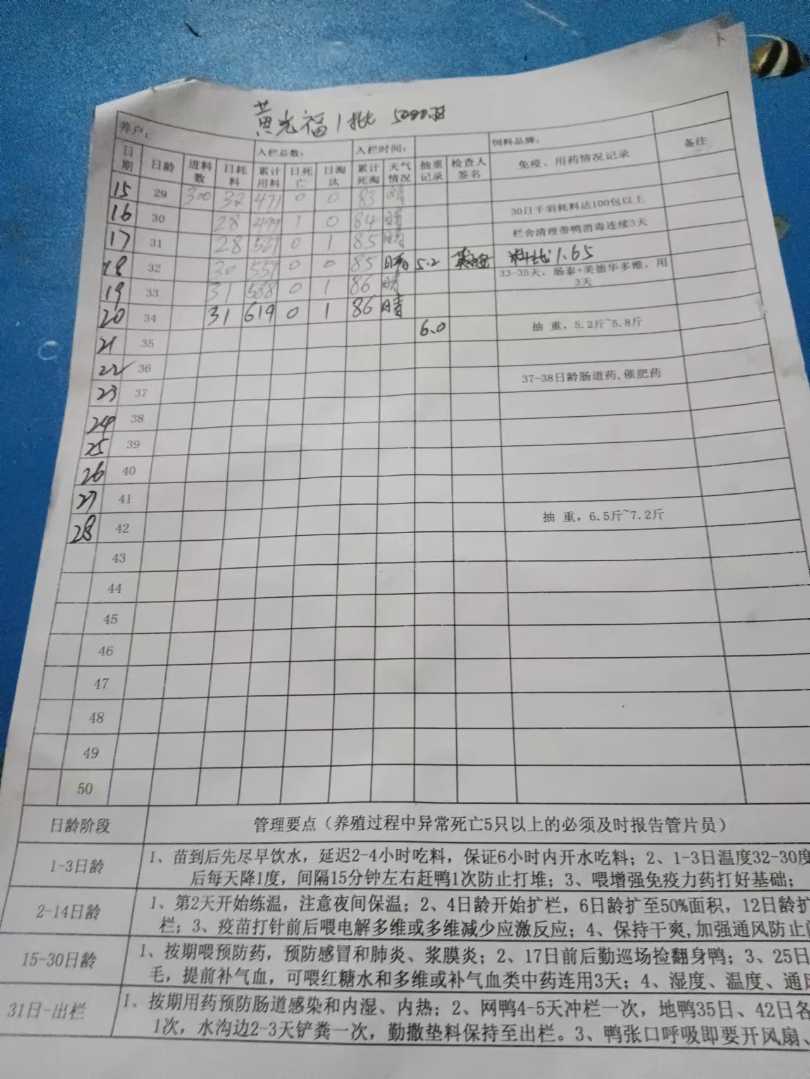 黄光福 1批 5000羽
养户: 入栏总数: 入栏时间: 饲料品牌: 备注
日期 日龄 进料数 日耗料 累计用料 日死亡 日淘汰 累计死淘 天气情况 抽重记录 检查人签名 免疫、用药情况记录
15 29 300 32 471 0 0 83 晴
16 30 28 499 1 0 84 晴 30日千羽耗料达100包以上
17 31 28 527 0 1 85 晴 栏舍清理带鸭消毒连续3天
18 32 30 557 0 0 85 晴 5.2 料比1.65
19 33 31 588 0 1 86 晴 33-35天,肠泰+美德华多维,用3天
20 34 31 619 0 1 86 晴
21 35 6.0 抽 重,5.2斤~5.8斤
22 36
23 37 37-38日龄肠道药,催肥药
24 38
25 39
26 40
27 41
28 42 抽 重,6.5斤~7.2斤
43
44
45
46
47
48
49
50
日龄阶段 管理要点(养殖过程中异常死亡5只以上的必须及时报告管片员)
1-3日龄 1、苗到后先尽早饮水,延迟2-4小时吃料,保证6小时内开水吃料;2、1-3日温度32-30度
后每天降1度,间隔15分钟左右赶鸭1次防止打堆;3、喂增强免疫力药打好基础;
2-14日龄 1、第2天开始练温,注意夜间保温;2、4日龄开始扩栏,6日龄扩至50%面积,12日龄扩
栏;3、疫苗打针前后喂电解多维或多维减少应激反应;4、保持干爽,加强通风防止
15-30日龄 1、按期喂预防药,预防感冒和肺炎、浆膜炎;2、17日前后勤巡场捡翻身鸭;3、25日
毛,提前补气血,可喂红糖水和多维或补气血类中药连用3天;4、湿度、温度、通
31日-出栏 1、按期用药预防肠道感染和内湿、内热;2、网鸭4-5天冲栏一次,地鸭35日、42日各
1次,水沟边2-3天铲粪一次,勤撒垫料保持至出栏。3、鸭张口呼吸即要开风扇、